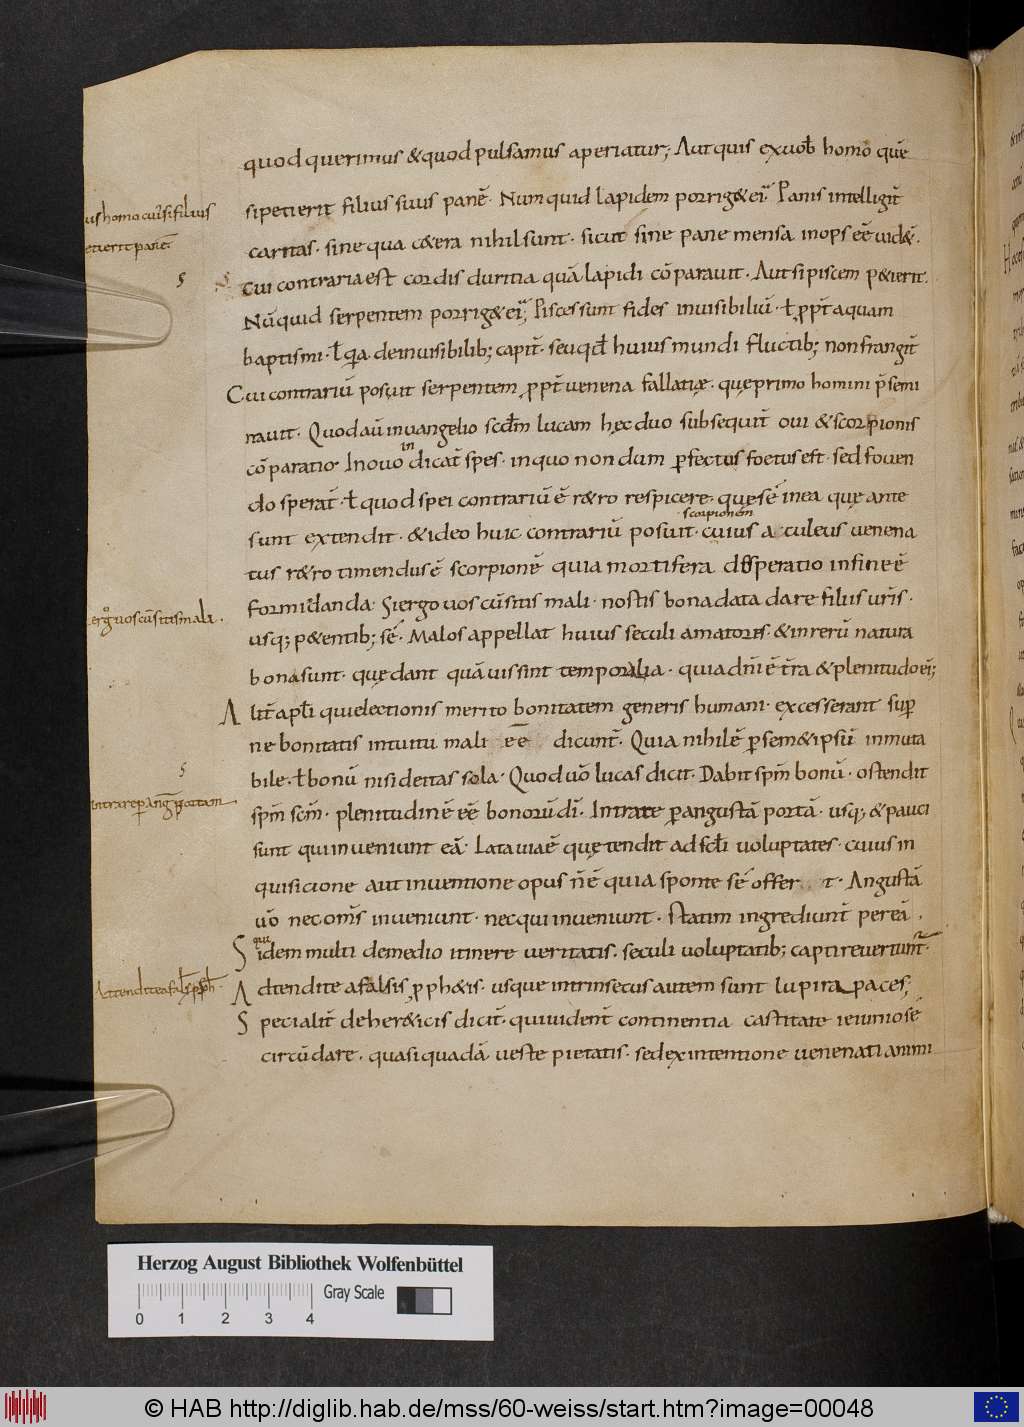 quod querimus & quod pulsamus aperiatur; Aut quis ex uob̄ homo quē
si petierit filius suus panē. Numquid lapidem porrig& ei; Panis intelligit̄
caritas. sine qua c&era nihil sunt. sicut sine pane mensa inops eē uid&.
us homo cui si filius
etierit panē.
Cui contraria est cordis duritia quā lapidi cōparauit. Aut si piscem p&ierit.
Nūquid serpentem porrig& ei; Pisces sunt fides inuisibiliū. ł ꝓpt̄ aquam
baptismi. ł q̄a de inuisibilib; capit̄. seu qđ huius mundi fluctib; non frangit̄
Cui contrariū posuit serpentem ꝓpt̄ uenena fallatię. quę primo homini p̄semi
nauit. Quod aū in euangelio scđm lucam hęc duo subsequit̄ oui & scorpionis
cōparatio. In ouo indicat̄ spes. in quo nondum ꝑfectus foetus est. sed fouen
do sperat̄. ł quod spei contrariū ē r&ro respicere. quę sē in ea quę ante
sunt extendit. & ideo huic contrariū posuit scorpionēm cuius aculeus uenena
tus r&ro timendus ē scorpionē quia mortifera desperatio in fine ē
formidanda. Si ergo uos cū sitis mali. nostis bona data dare filiis ur̄is.
ergo uos cū sitis mali.
usq; p&entib; sē. Malos appellat huius seculi amatores. & in rerū natura
bona sunt. quę dant quāuis sint temporalia. quia dn̄i ē t̄ra & plenitudo ei;
Alit̄ apłi qui electionis merito bonitatem generis humani. excesserant sup̄
ne bonitatis intuitu mali eē dicunt̄. Quia nihil ē ꝑ sem&ipsū inmuta
bile. ł bonū nisi deitas sola. Quod uō lucas dicit. Dabit spm̄ bonū. ostendit
intrare ꝑ Angꝰ portam
spm̄ scm̄. plenitudinē eē bonorū dī. Intrate ꝑ angustā portā. usq; & pauci
sunt qui inueniunt eā. Lata uia ē quę tendit ad scłi uoluptates. cuius in
quisicione aut inuentione opus n̄ ē quia sponte sē offert. Angustā
uō nec om̄s inueniunt. nec qui inueniunt. statim ingrediunt̄ per eā.
Siquidem multi de medio itinere ueritatis. seculi uoluptatib; capti reuertunt̄.
Attendite a falsꝭ ꝓph.
Adtendite a falsis ꝓph&is. usque intrinsecus autem sunt lupi rapaces;
Specialit̄ de her&icis dicit̄. qui uident̄ continentia castitate ieiunio sē
circūdare. quasi quadā ueste pietatis. sed ex intentione uenenati animi
Herzog August Bibliothek Wolfenbüttel
Gray Scale
0 1 2 3 4
© HAB http://diglib.hab.de/mss/60-weiss/start.htm?image=00048